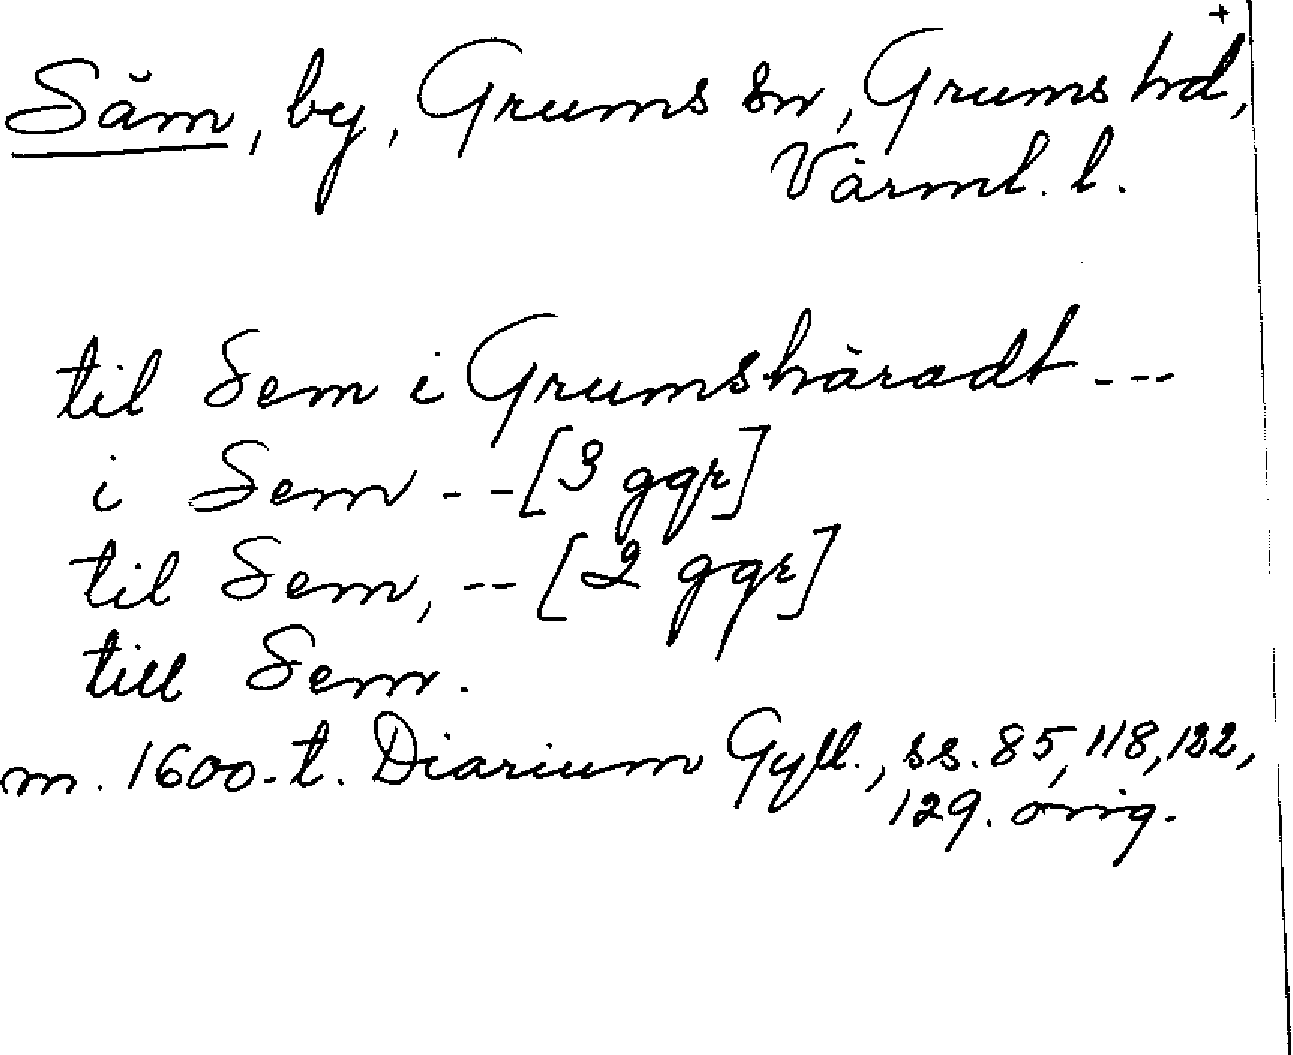 +
Säm, by, Grums sn, Grums hd,
Värml. l.
til Sem i Grumshäradt ---
i Sem -- [3 ggr]
til Sem, -- [2 ggr]
till Sem.
m. 1600-t. Diarium Gyll., ss. 85, 118, 122,
129. orig.